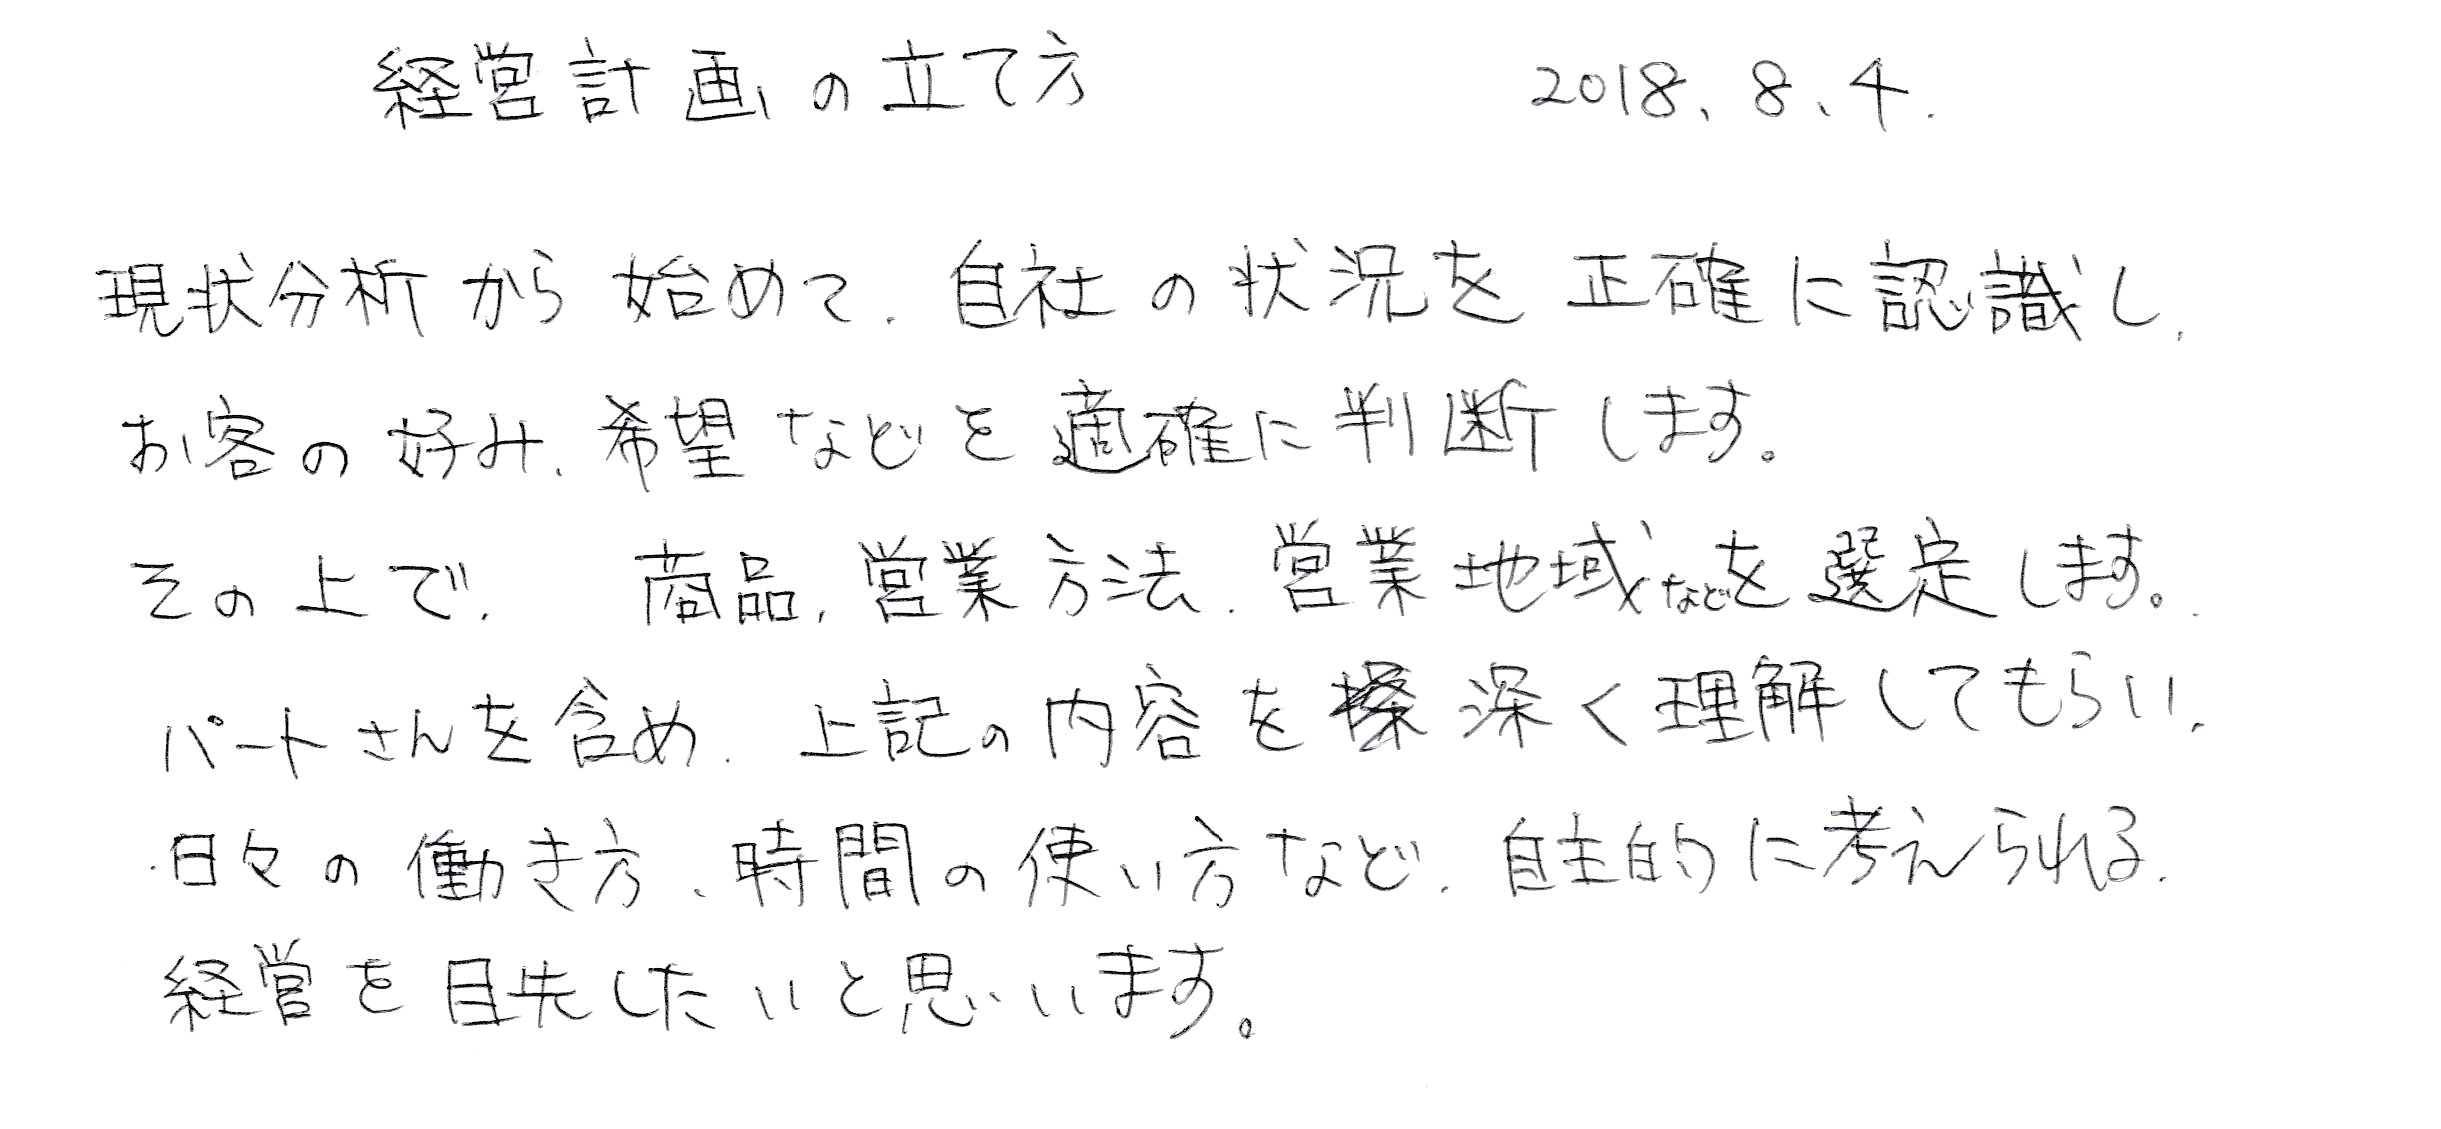 経営計画の立て方 2018、8、4.
現状分析から始めて、自社の状況を正確に認識し、
お客の好み、希望などを適確に判断します。
その上で、商品、営業方法、営業地域などを選定します。
パートさんを含め、上記の内容を深く理解してもらい、
日々の働き方、時間の使い方など、自主的に考えられる、
経営を目先したいと思います。